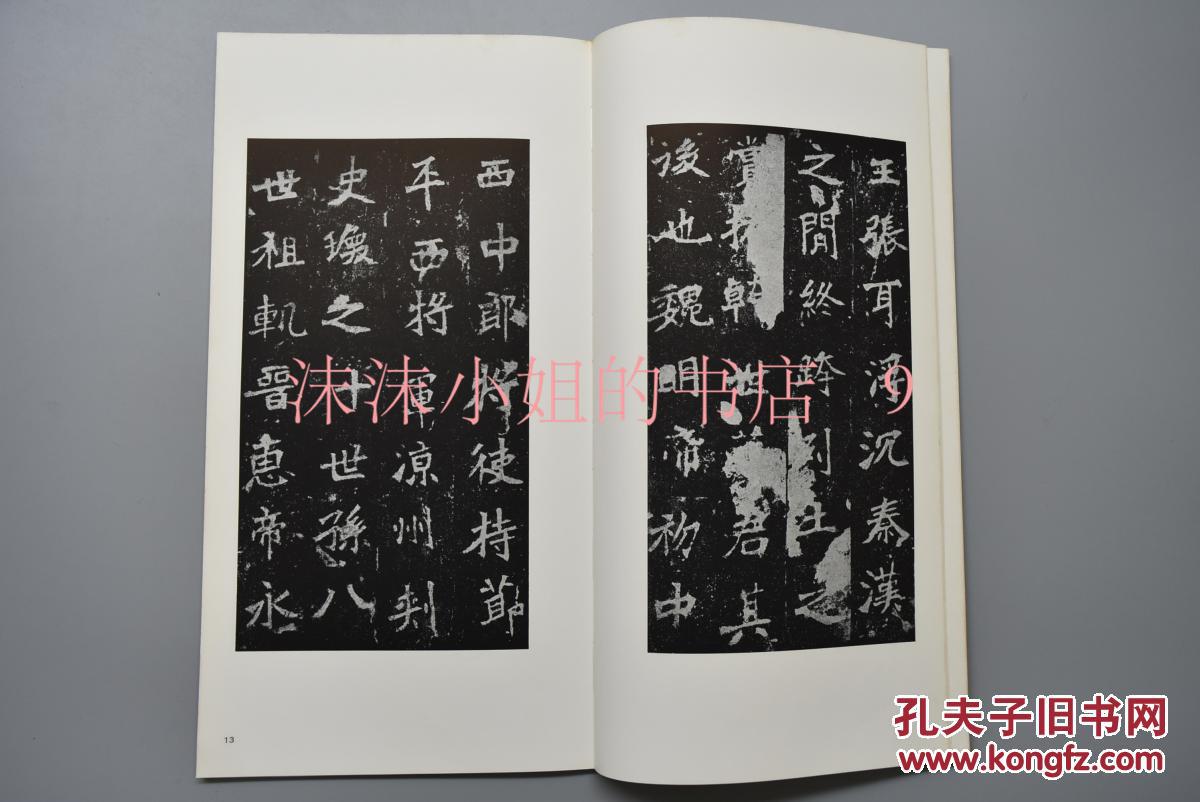 王張耳浮沉秦漢
之間終跨刻土之
賞拔乾世君其
後也魏明帝初中
西中郎將使持節
平西將軍涼州刺
史瓊之十世孫八
世祖軌晉惠帝永
13
沫沫小姐的书店 9
孔夫子旧书网
www.kongfz.com